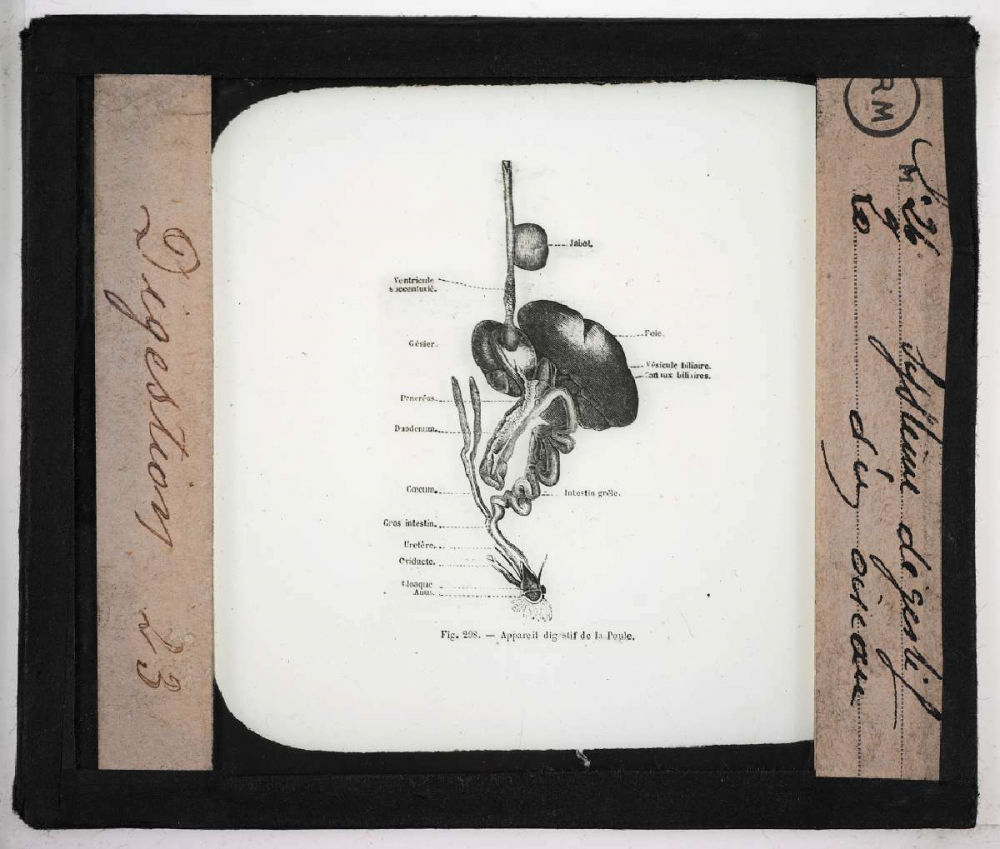 Digestion 23
Jabot.
Ventricule
succenturié.
Gésier.
Foie.
Vésicule biliaire.
Canaux biliaires.
Pancréas.
Duodenum.
Cœcum.
Intestin grêle.
Gros intestin.
Uretère.
Oviducte.
Cloaque
Anus.
Fig. 298. — Appareil digestif de la Poule.
RM
M
Système digestif
des oiseaux